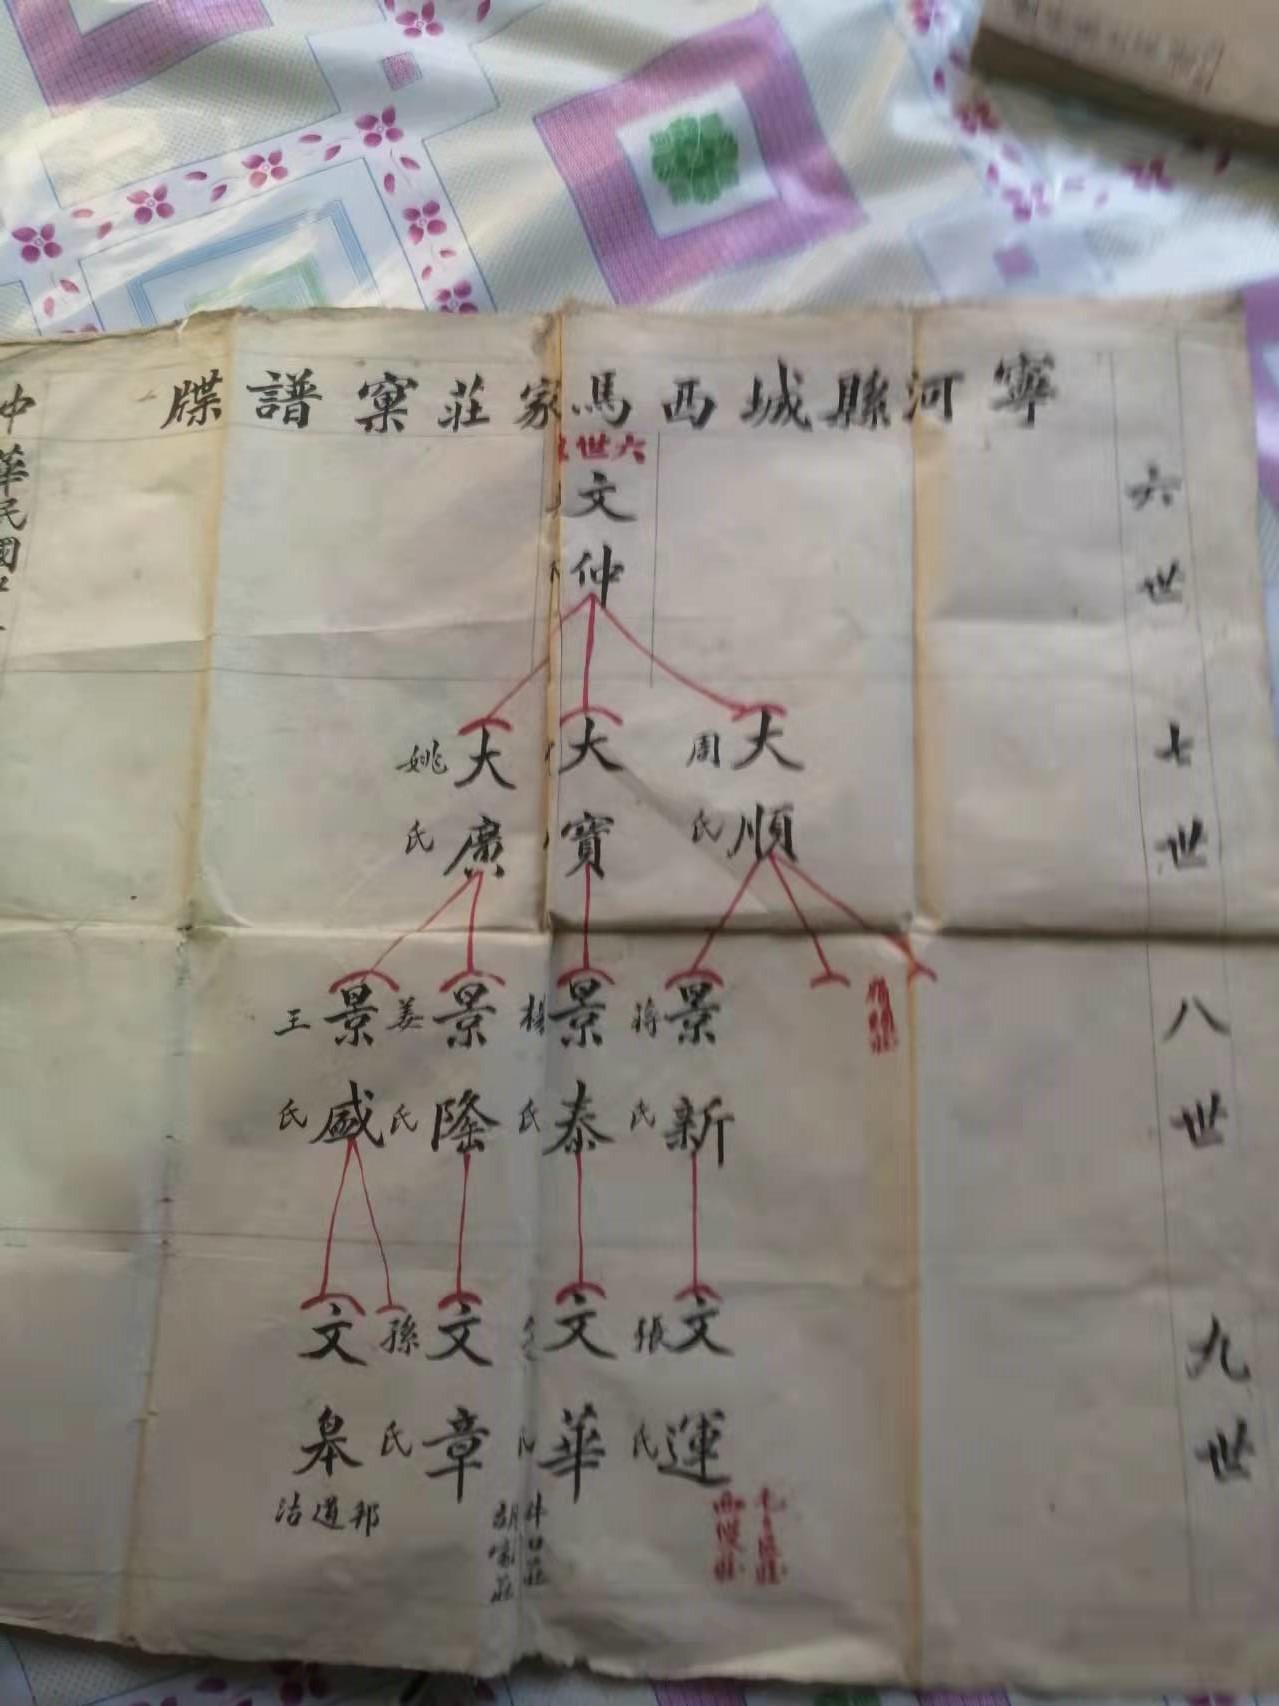 寧河縣城西馬家莊窠譜牒
六世
六世
文仲
七世
大順
周氏
大寶
大廣
姚氏
八世
景新
蔣氏
景泰
氏
景隆
姜氏
景盛
王氏
九世
文運
張氏
文華
文章
孫氏
文皋
胡家莊
邦道沽
中華民國